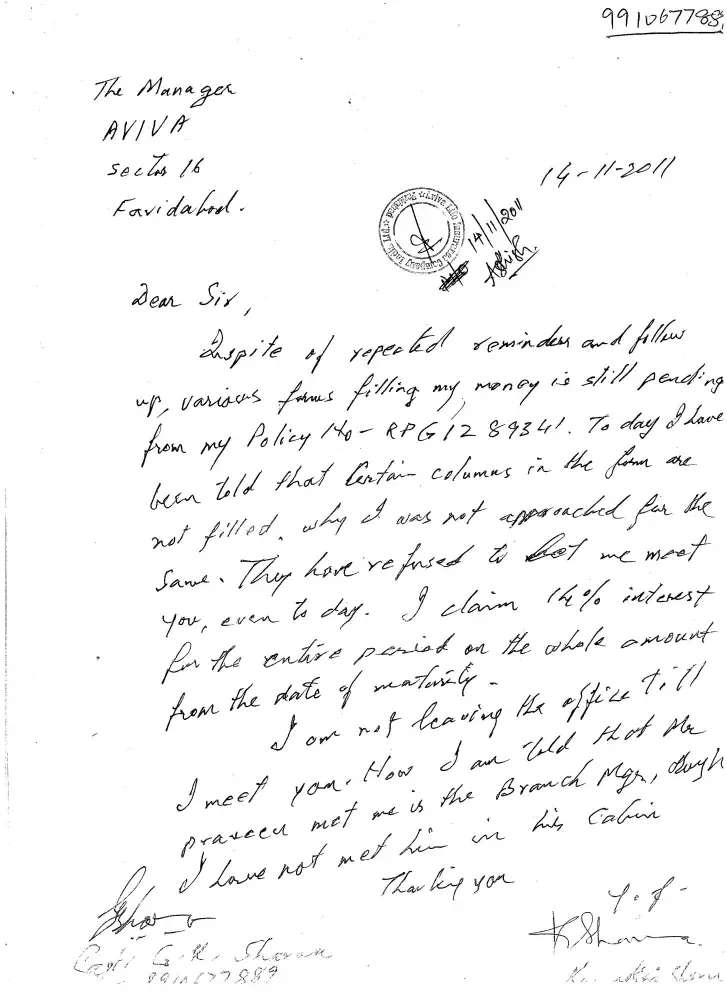 991067788
The Manager
AVIVA
Sector 16
Faridabad.
14-11-2011
Aviva Life Insurance Company India Ltd. Faridabad
14/11/2011
Ashish
Dear Sir,
Inspite of repeated reminders and follow
up, various forms filling my money is still pending
from my Policy No- RPG1289341. To day I have
been told that Certain columns in the form are
not filled, why I was not approached for the
same. They have refused to let me meet
you, even to day. I claim 14% interest
for the entire period on the whole amount
from the date of maturity -
I am not leaving the office till
I meet you. Now I am told that Mr
praveen met me is the Branch Mgr, though
I have not met him in his Cabin
Thanking you
Y. f -
Capt. G. K. Sharma
9910677889
K Sharma